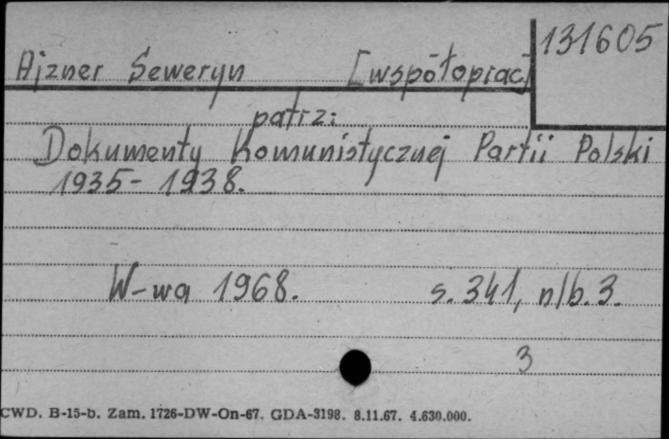 131605
Ajzner Seweryn [współoprac]
patrz:
Dokumenty Komunistycznej Partii Polski
1935-1938.
W-wa 1968. s. 341, nlb. 3.
3
CWD. B-15-b. Zam. 1726-DW-On-67. GDA-3198. 8.11.67. 4.630.000.